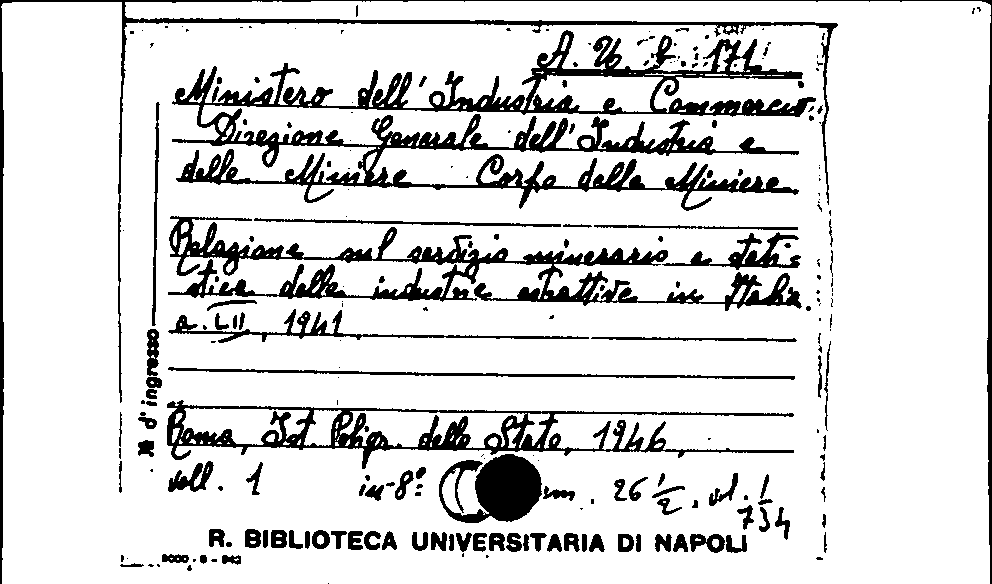 A. U. b. 171
Ministero dell'Industria e Commercio.
Direzione Generale dell'Industria e
delle Miniere. Corpo delle Miniere.
Relazione sul servizio minerario e stati=
stica delle industrie estrattive in Italia.
a. LII, 1941.
Roma, Ist. Poligr. dello Stato, 1946,
voll. 1 in-8°: cm. 26 1/2, vol. 1
734
N. d'ingresso
R. BIBLIOTECA UNIVERSITARIA DI NAPOLI